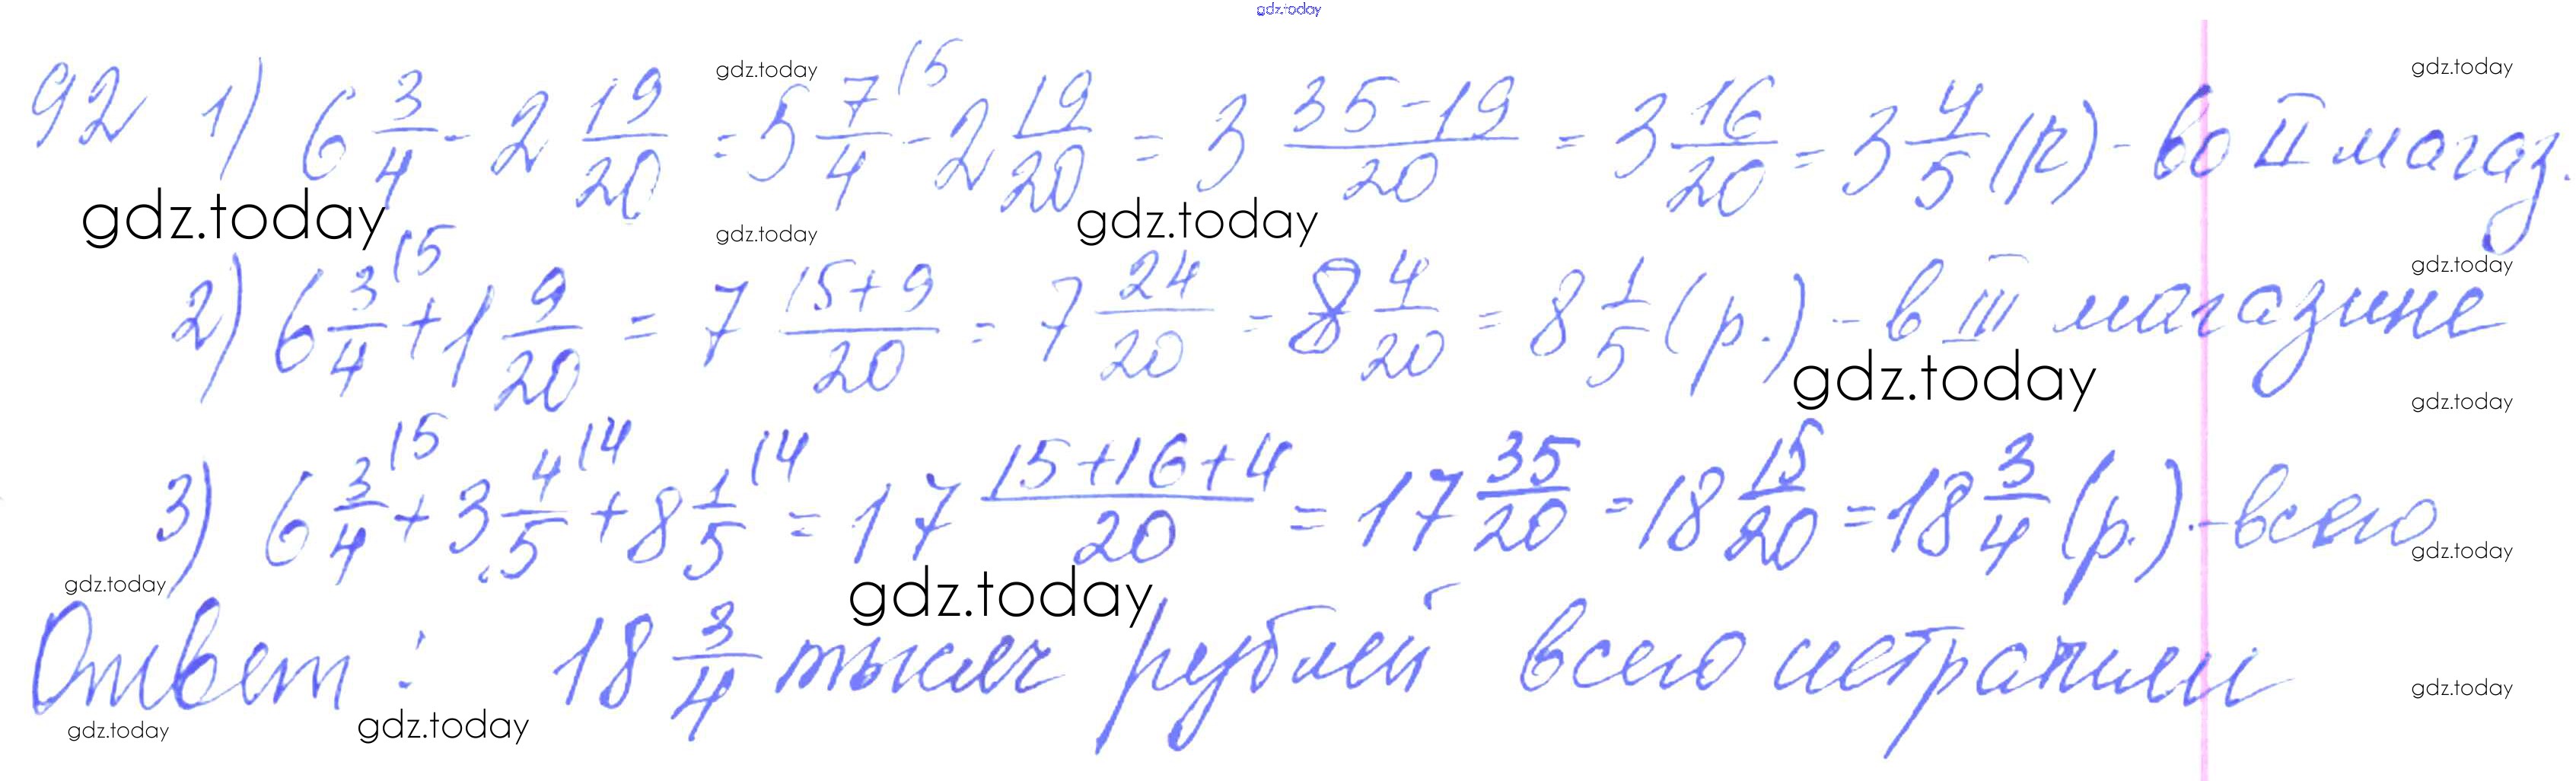 gdz.today
92 1) 6 3/4 - 2 19/20 = 5 7/4 (5 - 2 19/20 = 3 35-19/20 = 3 16/20 = 3 4/5 (р) - во II магаз.
gdz.today gdz.today
gdz.today gdz.today gdz.today
2) 6 3/4 (5 + 1 9/20 = 7 15+9/20 = 7 24/20 = 8 4/20 = 8 1/5 (р.) - в III магазине
gdz.today
gdz.today gdz.today
3) 6 3/4 (5 + 3 4/5 (4 + 8 1/5 (4 = 17 15+16+4/20 = 17 35/20 = 18 15/20 = 18 3/4 (р.) - всего
gdz.today gdz.today gdz.today
Ответ: 18 3/4 тысяч рублей всего истратили
gdz.today gdz.today gdz.today